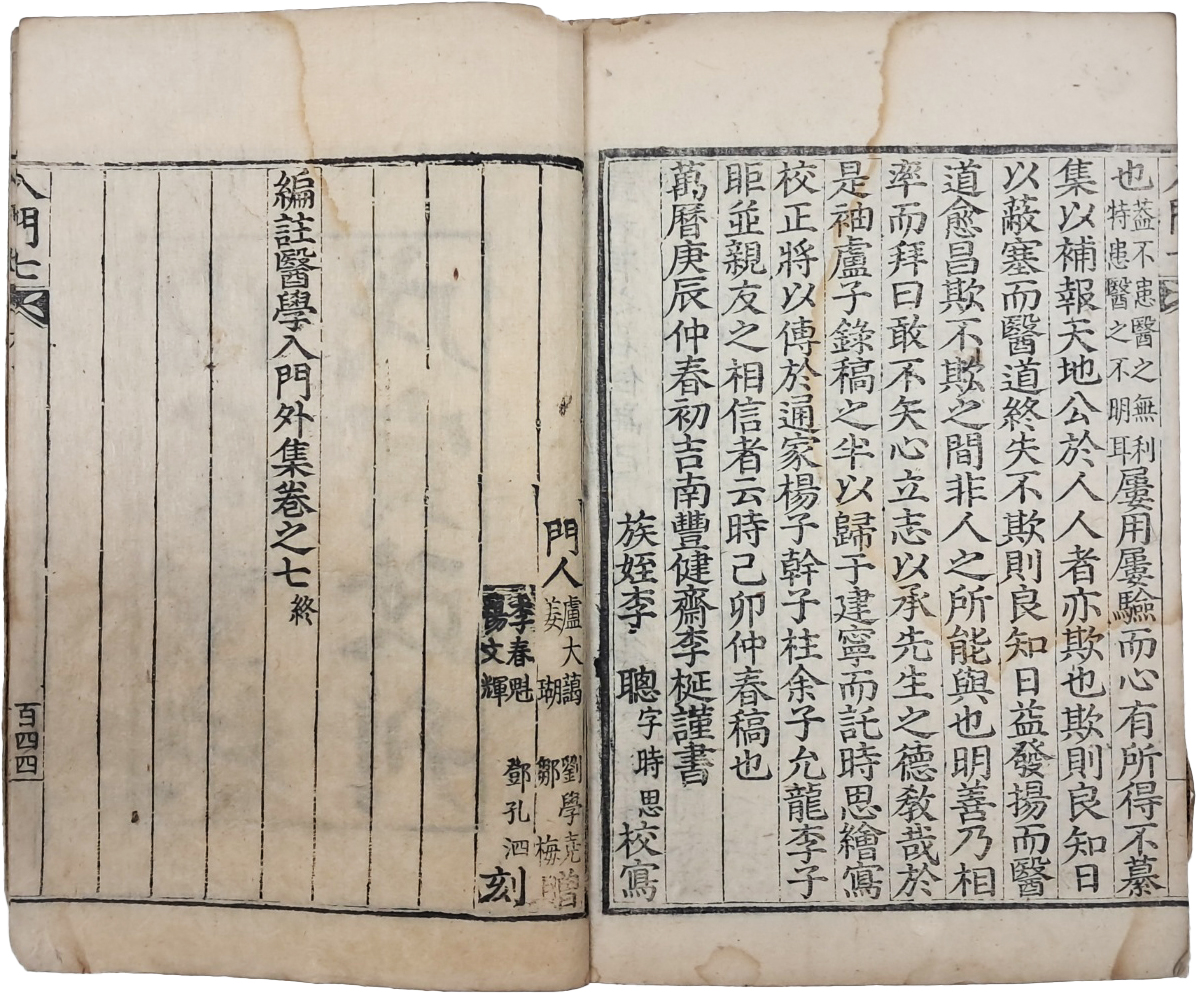 也蓋不患醫之無利特患醫之不明耳屢用屢驗而心有所得不纂
集以補報天地公於人人者亦欺也欺則良知日
以蔽塞而醫道終失不欺則良知日益發揚而醫
道愈昌欺不欺之間非人之所能與也明善乃相
率而拜曰敢不矢心立志以承先生之德敎哉於
是袖盧子錄稿之半以歸于建寧而託時思繪寫
校正將以傳於通家楊子幹子柱余子允龍李子
昛並親友之相信者云時己卯仲春稿也
萬曆庚辰仲春初吉南豐健齋李梴謹書
族姪李聰字時思校寫
門人盧大藹 劉學堯
姜瑚 鄒梅
李春魁
楊文輝 鄧孔泗 刻
編註醫學入門外集卷之七終
入門七
百四四